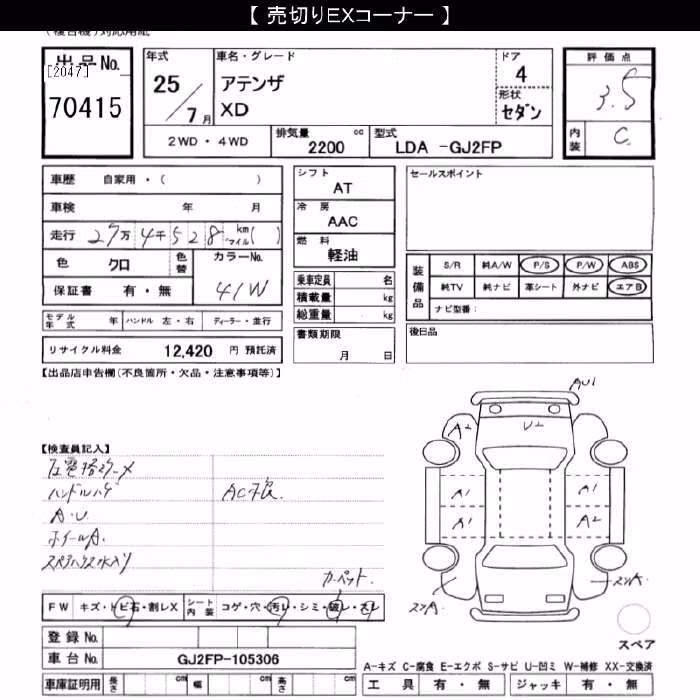 【 売切りEXコーナー 】
出品No.
[2047]
70415
年式
25/7月
車名・グレード
アテンザ
XD
ドア
4
形状
セダン
評価点
3.5
内装
C
2WD ・ 4WD
排気量 2200 cc
型式 LDA -GJ2FP
車歴 自家用・( )
車検 年 月
走行 27万4千528 km マイル( )
色 クロ 色替 カラーNo. 41W
保証書 有・無
モデル年式 年 ハンドル 左・右 ディーラー・並行
リサイクル料金 12,420 円 預託済
シフト
AT
冷房
AAC
燃料
軽油
乗車定員 名
積載量 kg
総重量 kg
書類期限
月 日
セールスポイント
装備品
S/R 純A/W P/S P/W ABS
純TV 純ナビ 革シート 外ナビ エアB
ナビ型番:
後日品
【出品店申告欄(不良箇所・欠品・注意事項等)】
【検査員記入】
ハンドルハゲ
A.U
ホイールA.
AU1
A2
U2
A1
A1
A1
A2
カーペット.
FW キズ・トビ石・割レX シート内装 コゲ・穴・汚レ・シミ・破レ・スレ
登録 No.
車台 No. GJ2FP-105306
車庫証明用 長さ cm 幅 cm 高さ cm
スペア
A-キズ C-腐食 E-エクボ S-サビ U-凹ミ W-補修 XX-交換済
工具 有・無 ジャッキ 有・無